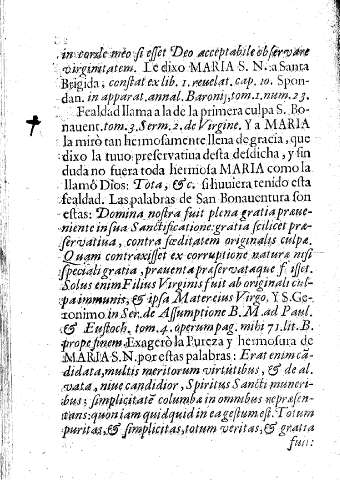 in corde meo si esset Deo acceptabile observare
virginitatem. Le dixo MARIA S. N. a Santa
Brigida, constat ex lib. 1. reuelat. cap. 10. Spon-
dan. in apparat. annal. Baronij, tom. 1. num. 23.
Fealdad llama a la de la primera culpa S. Bo-
nauent. tom. 3. Serm. 2. de Virgine. Y a MARIA
la mirò tan hermosamente llena de gracia, que
dixo la tuuo preservativa desta desdicha, y sin
duda no fuera toda hermosa MARIA como la
llamó Dios: Tota, &c. si huuiera tenido esta
fealdad. Las palabras de San Bonauentura son
estas: Domina nostra fuit plena gratia præue-
niente in sua Sanctificatione: gratia scilicet præ-
servatiua, contra fœditatem originalis culpæ.
Quam contraxisset ex corruptione naturæ nisi
speciali gratia, præuenta præservataque f isset.
Solus enim Filius Virginis fuit ab originali cul-
pa immunis, & ipsa Mater eius Virgo. Y S. Ge-
ronimo in Ser. de Assumptione B. M. ad Paul.
& Eustoch. tom. 4. operum pag. mihi 71. lit. B.
prope finem. Exagerò la Pureza y hermosura de
MARIA S. N. por estas palabras: Erat enim cā-
didata, multis meritorum virtutibus, & de al-
vata, niue candidior, Spiritus Sancti muneri-
bus; simplicitatē columbæ in omnibus repræsen-
tans: quoniam quidquid in ea gestum est. Totum
puritas, & simplicitas, totum veritas, & gratia
fuit: